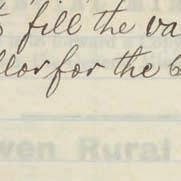 fill the va
llor for the
Rural